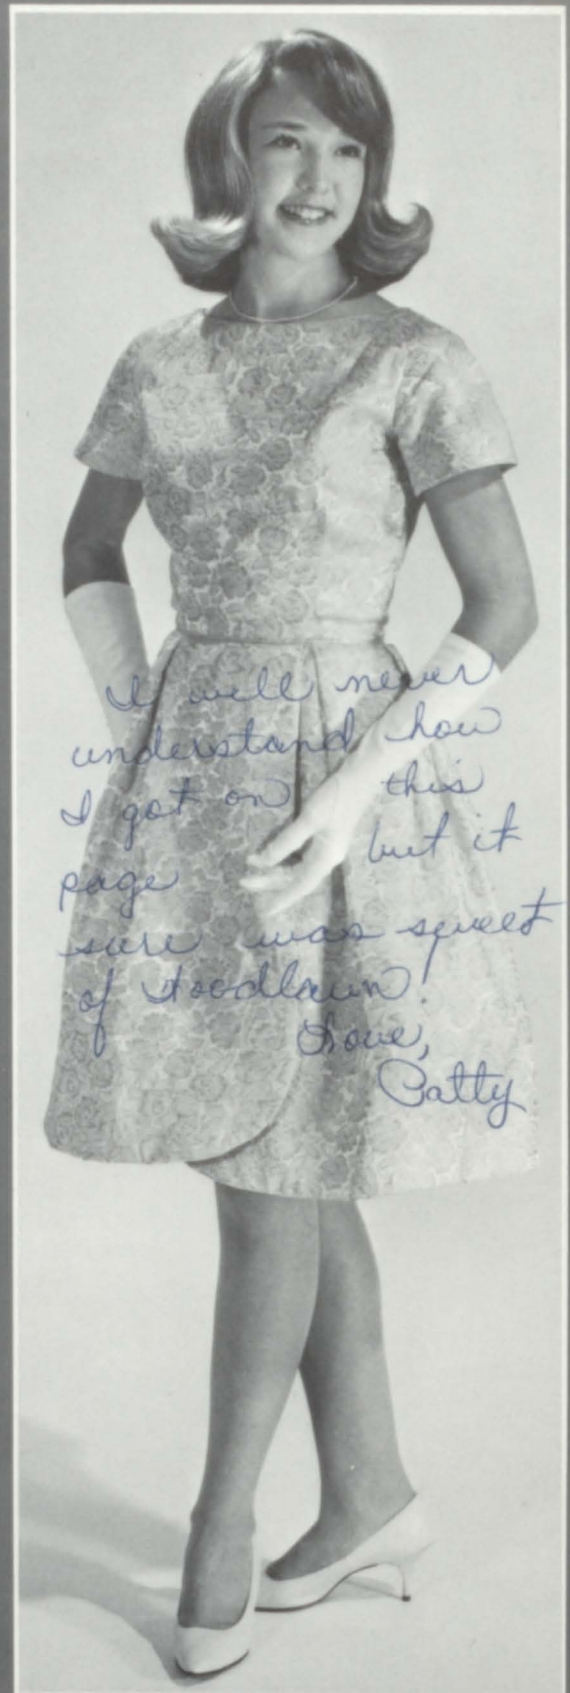 I will never
understand how
I got on this
page but it
sure was sweet
of Woodlawn!
Love,
Patty